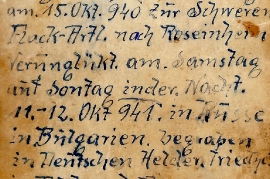 am. 15. Okt. 940 zur Schweren
Flack-Artl. nach Rosenheim
Verunglükt. am. Samstag
auf Sontag in der. Nacht.
11.-12. Okt 941. in Russe
in Bulgarien. begraben
in Deutschen Helden Friedho